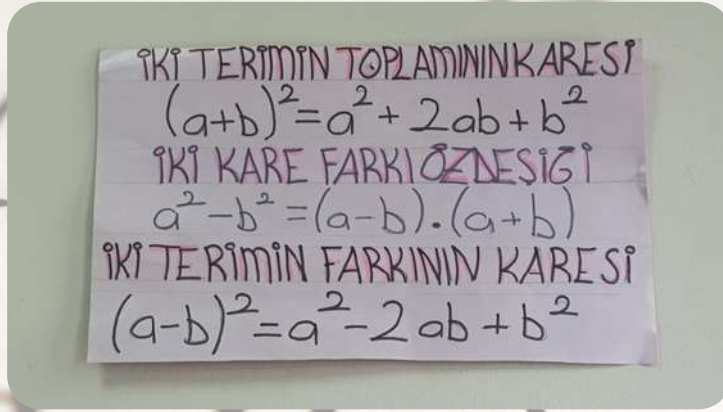 İKİ TERİMİN TOPLAMININ KARESİ
(a+b)²=a²+2ab+b²
İKİ KARE FARKI ÖZDEŞİĞİ
a²-b²=(a-b).(a+b)
İKİ TERİMİN FARKININ KARESİ
(a-b)²=a²-2ab+b²